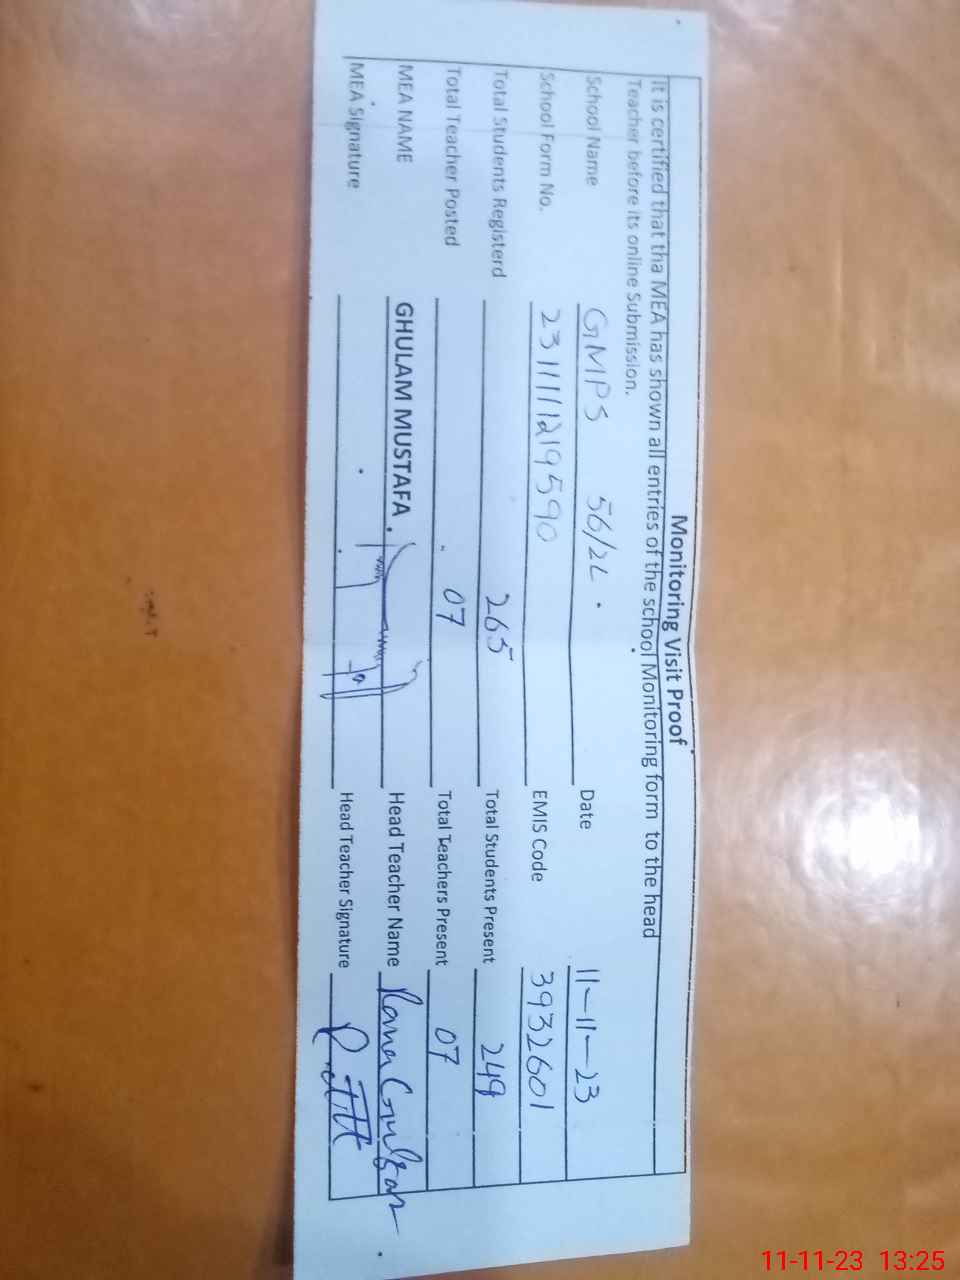 Monitoring Visit Proof
It is certified that tha MEA has shown all entries of the school Monitoring form to the head
Teacher before its online Submission.
School Name GMPS 56/2L. Date 11-11-23
School Form No. 231111219590 EMIS Code 3932601
Total Students Registerd 265 Total Students Present 249
Total Teacher Posted 07 Total Teachers Present 07
MEA NAME GHULAM MUSTAFA. Head Teacher Name
MEA Signature Head Teacher Signature
11-11-23 13:25